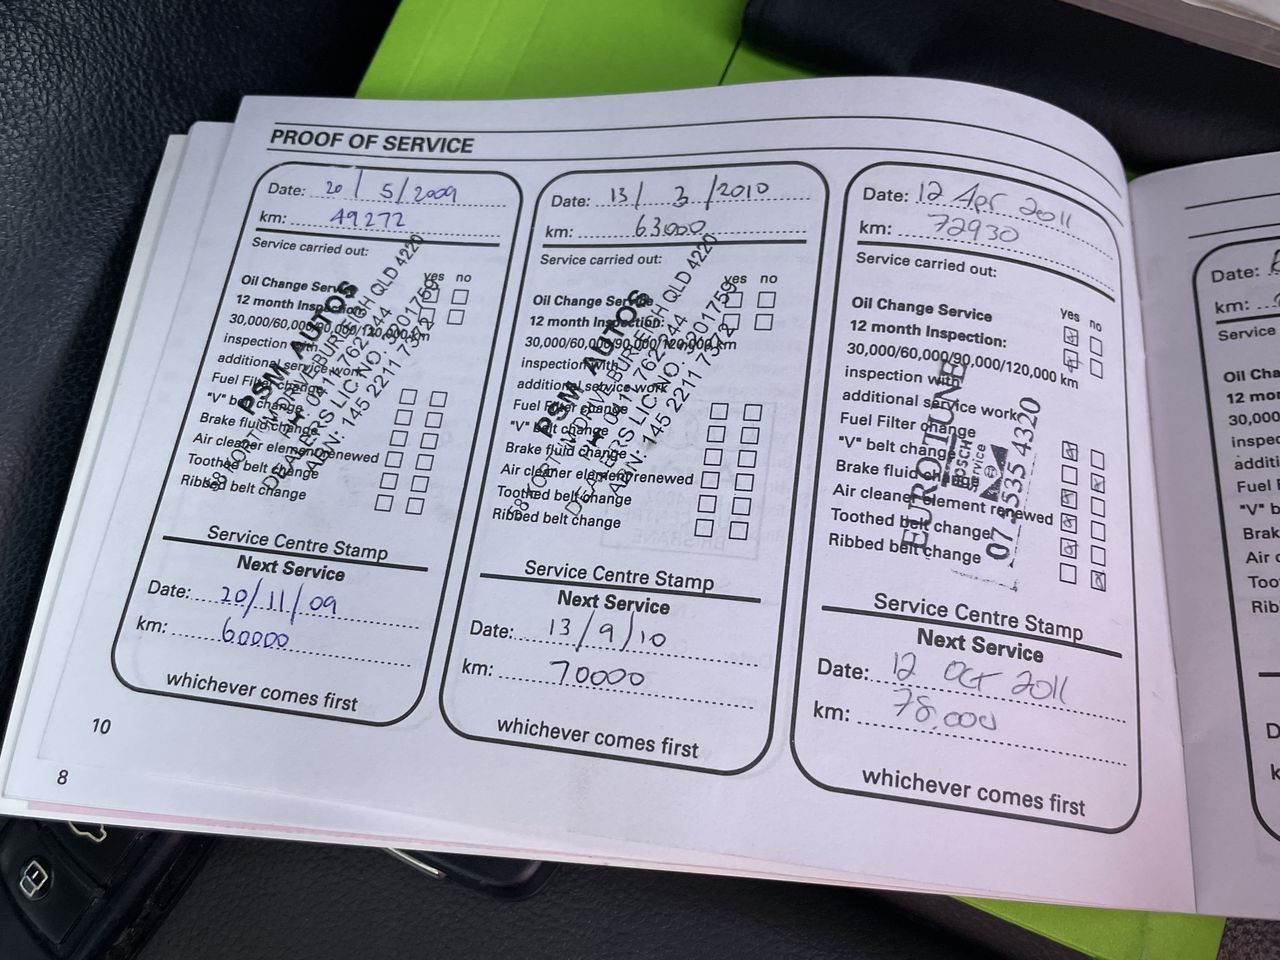 PROOF OF SERVICE
Date: 20/5/2009
km: 49272
Service carried out:
yes no
Oil Change Service
12 month Inspection:
30,000/60,000/90,000/120,000 km
inspection with
additional service work
Fuel Filter change
"V" belt change
Brake fluid change
Air cleaner element renewed
Toothed belt change
Ribbed belt change
PSM AUTOS
DRIVE BURLEIGH QLD 4220
DEALERS LIC NO. 3201759
ABN: 145 2211 7372
Service Centre Stamp
Next Service
Date: 20/11/09
km: 60000
whichever comes first
Date: 13/3/2010
km: 63000
Service carried out:
yes no
Oil Change Service
12 month Inspection:
30,000/60,000/90,000/120,000 km
inspection with
additional service work
Fuel Filter change
"V" belt change
Brake fluid change
Air cleaner element renewed
Toothed belt change
Ribbed belt change
PSM AUTOS
DRIVE BURLEIGH QLD 4220
DEALERS LIC NO. 3201759
ABN: 145 2211 7372
Service Centre Stamp
Next Service
Date: 13/9/10
km: 70000
whichever comes first
Date: 12 Apr 2011
km: 72930
Service carried out:
yes no
Oil Change Service
12 month Inspection:
30,000/60,000/90,000/120,000 km
inspection with
additional service work
Fuel Filter change
"V" belt change
Brake fluid change
Air cleaner element renewed
Toothed belt change
Ribbed belt change
EURO TUNE
BOSCH
Service
07 5535 4320
Service Centre Stamp
Next Service
Date: 12 Oct 2011
km: 78,000
whichever comes first
10
8
Date:
km:
Service
Oil Cha
12 mon
30,000
inspec
additi
Fuel F
"V" b
Brak
Air c
Too
Rib
D
k